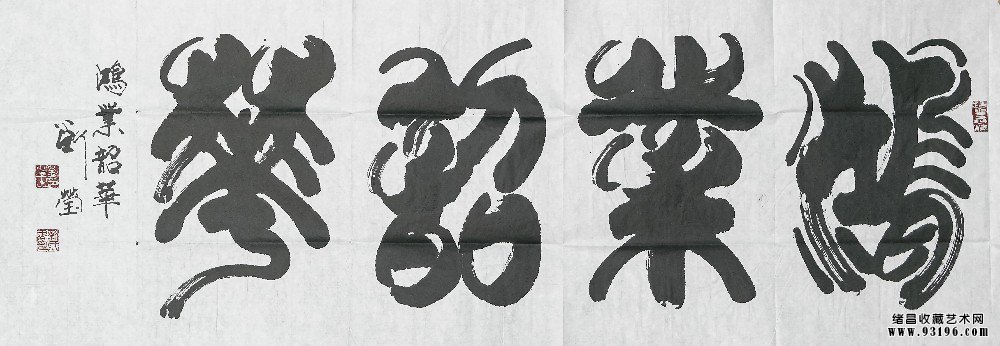 鴻業韶華
鴻業韶華
劉瑩
绪昌收藏艺术网
www.93196.com